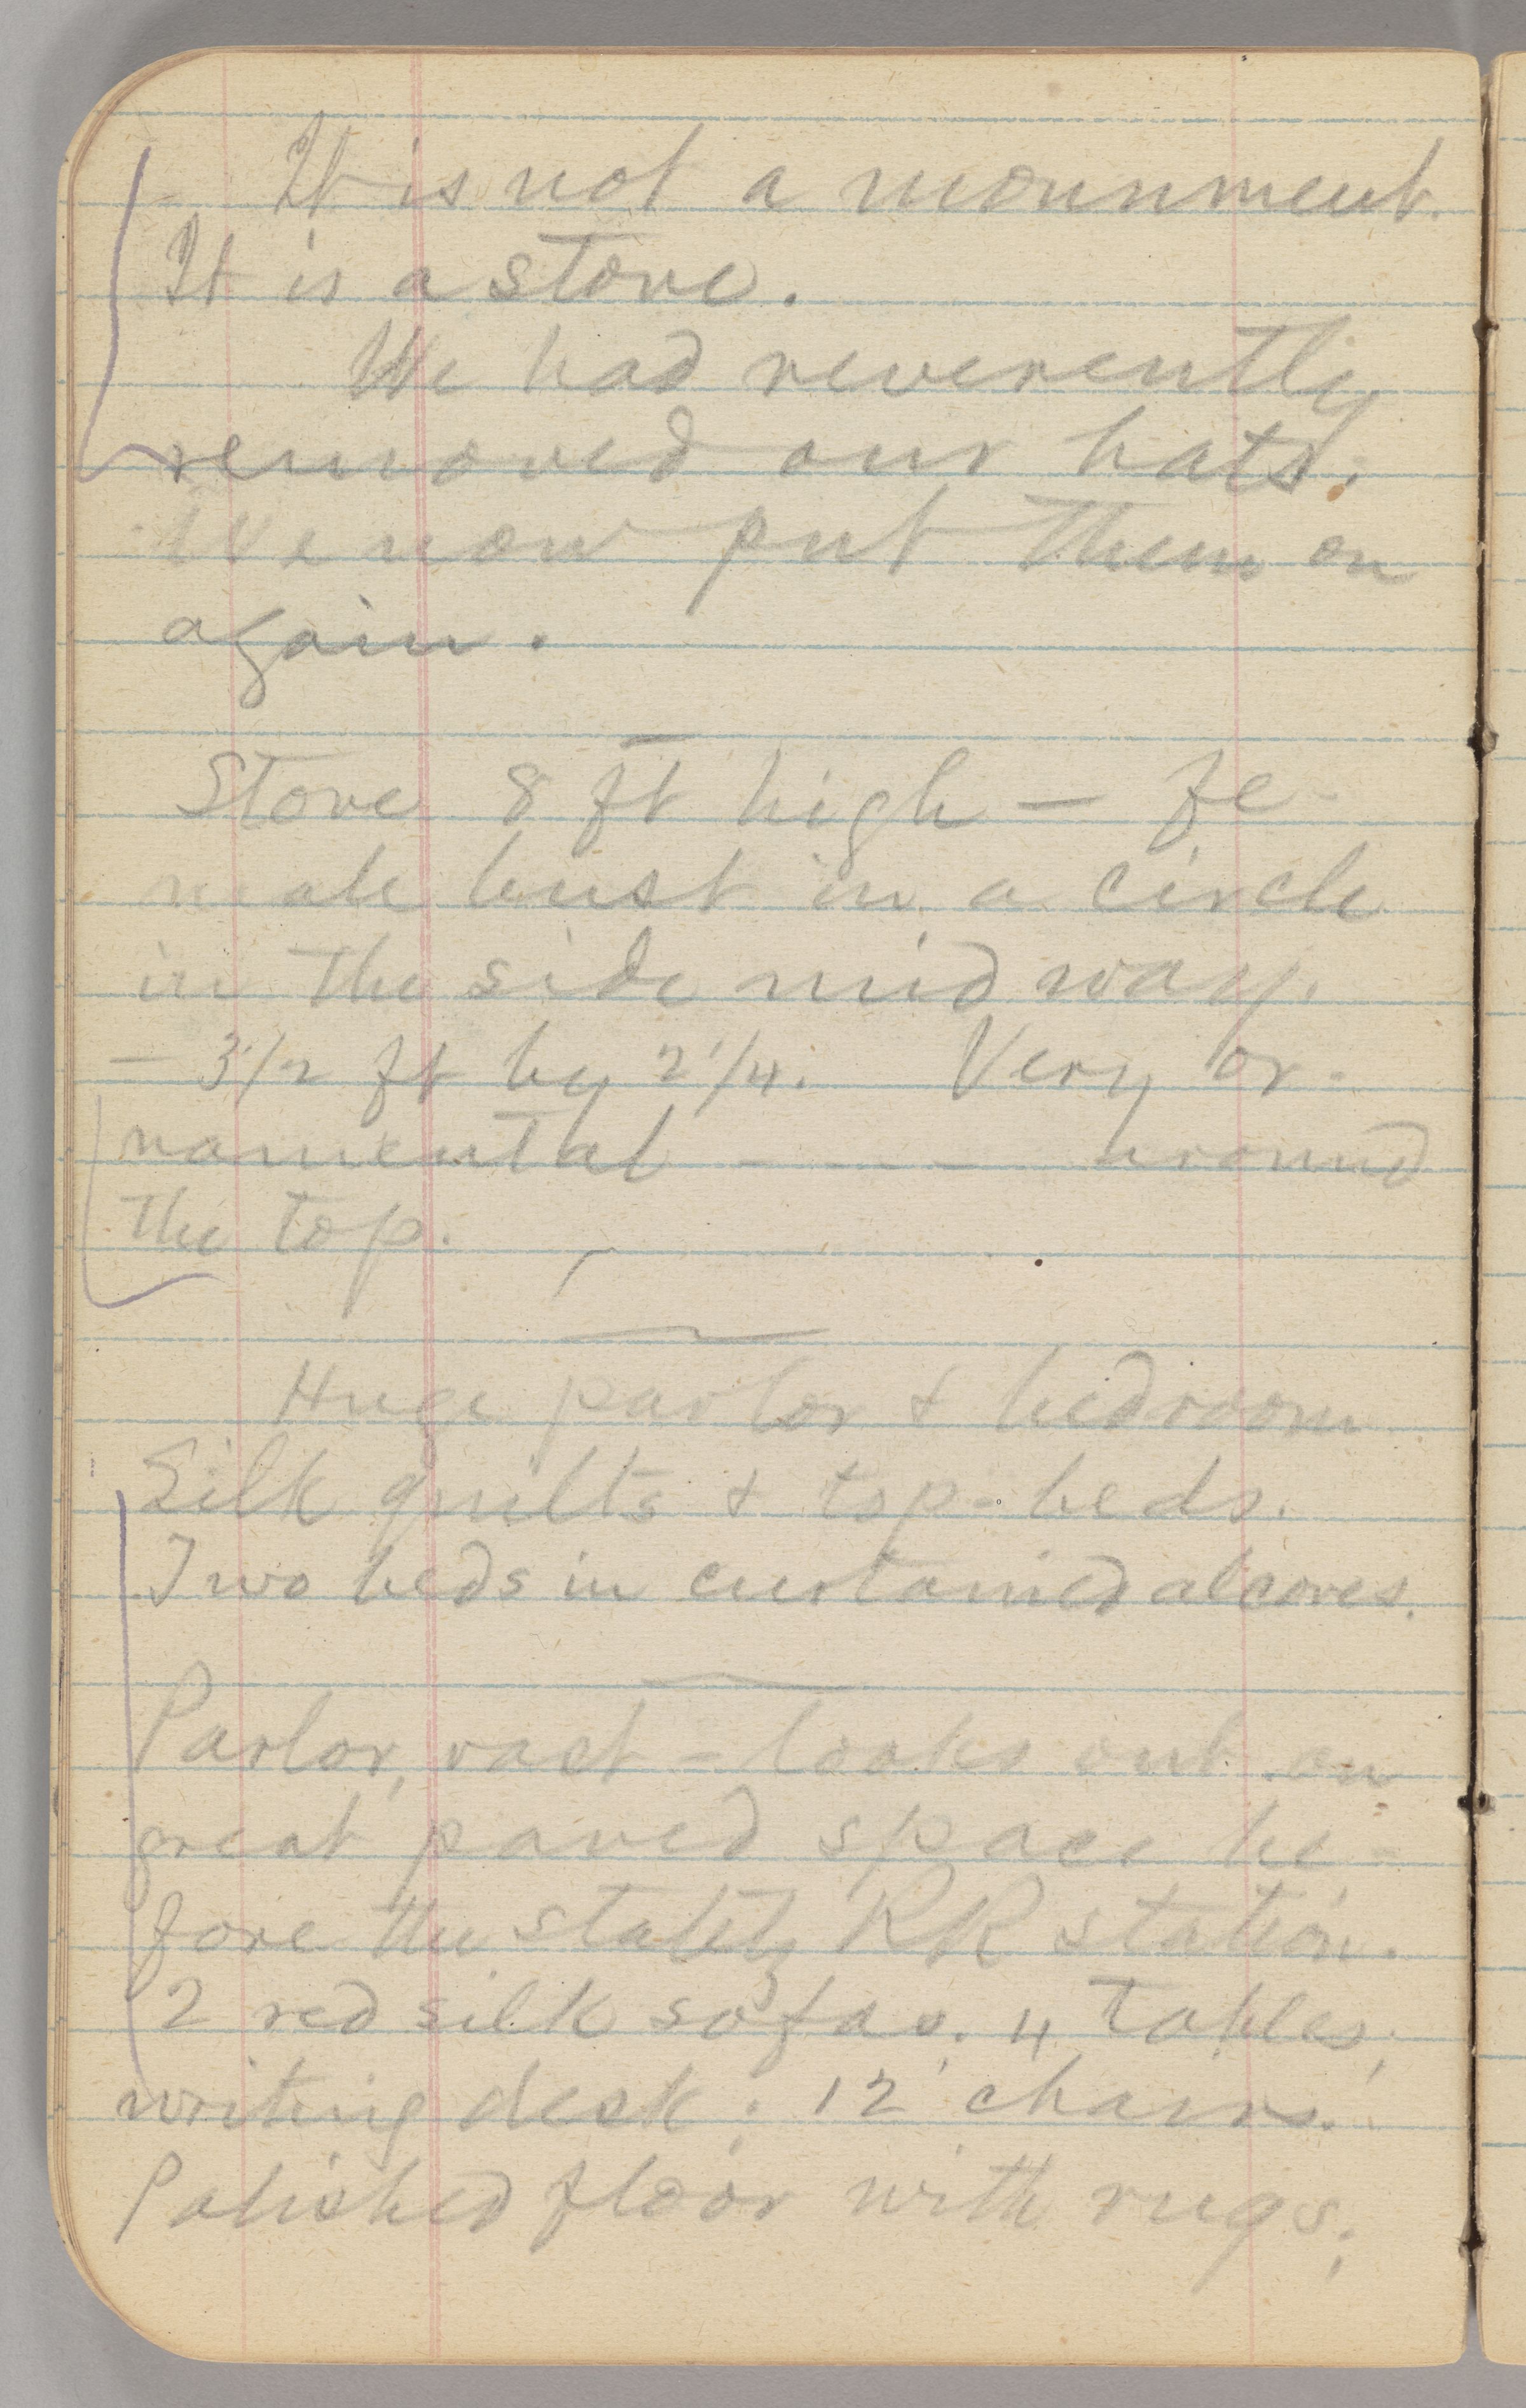 It is not a monument.
It is a stove.
We had reverently
removed our hats.
We now put them on
again.
Stove 8 ft high — fe-
male bust in a circle
in the side midway.
— 3½ ft by 2¼. Very or-
namental — — — around
the top.
Huge parlor & bedroom
Silk quilts & top-beds.
Two beds in curtained alcoves.
Parlor, vast — looks out on
great paved space be-
fore the stately RR station.
2 red silk sofas. 4 tables;
writing desk; 12 chairs.
Polished floor with rugs;